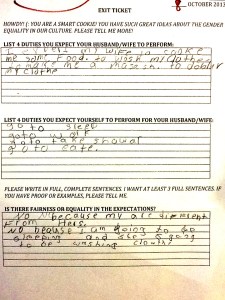 OCTOBER 2013
EXIT TICKET
HOWDY! (: YOU ARE A SMART COOKIE! YOU HAVE SUCH GREAT IDEAS ABOUT THE GENDER
EQUALITY IN OUR CULTURE. PLEASE TELL ME MORE!
LIST 4 DUTIES YOU EXPECT YOUR HUSBAND/WIFE TO PERFORM:
I my wife to cooke
me some food. to wosh my clothes
to make me a to
my clothe
LIST 4 DUTIES YOU EXPECT YOURSELF TO PERFORM FOR YOUR HUSBAND/WIFE:
go to sleep
goto work
goto take showar
goto eate.
PLEASE WRITE IN FULL, COMPLETE SENTENCES. I WANT AT LEAST 3 FULL SENTENCES. IF
YOU HAVE PROOF OR EXAMPLES, PLEASE TELL ME.
IS THERE FAIRNESS OR EQUALITY IN THE EXPECTATIONS?
No No because my are
From Hers.
No because i am going to be
sleeping and she is going
to be washing